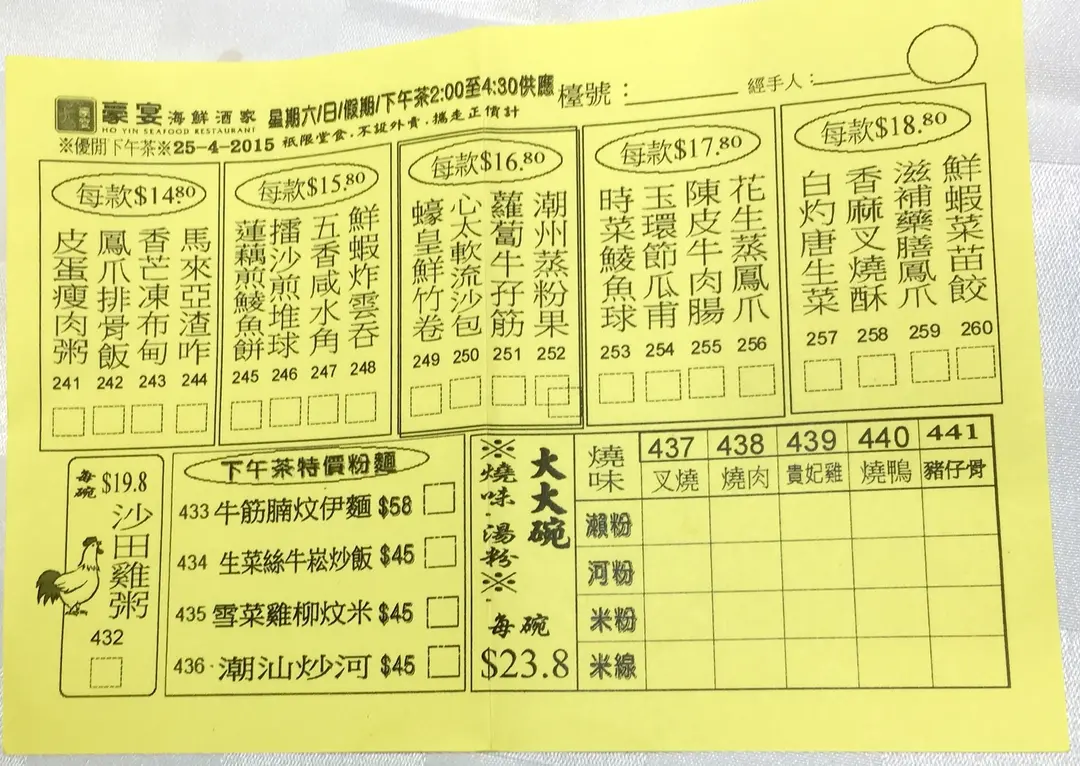 豪宴海鮮酒家
HO YIN SEAFOOD RESTAURANT
星期六/日/假期/下午茶2:00至4:30供應
檯號：
經手人：
※優閒下午茶※25-4-2015 祇限堂食，不設外賣，攜走正價計
每款$14.80
皮蛋瘦肉粥 241
鳳爪排骨飯 242
香芒凍布甸 243
馬來亞渣咋 244
每款$15.80
蓮藕煎鯪魚餅 245
擂沙煎堆球 246
五香咸水角 247
鮮蝦炸雲吞 248
每款$16.80
蠔皇鮮竹卷 249
心太軟流沙包 250
蘿蔔牛孖筋 251
潮州蒸粉果 252
每款$17.80
時菜鯪魚球 253
玉環節瓜甫 254
陳皮牛肉腸 255
花生蒸鳳爪 256
每款$18.80
白灼唐生菜 257
香麻叉燒酥 258
滋補藥膳鳳爪 259
鮮蝦菜苗餃 260
每碗 $19.8
沙田雞粥
432
下午茶特價粉麵
433 牛筋腩炆伊麵 $58
434 生菜絲牛崧炒飯 $45
435 雪菜雞柳炆米 $45
436 潮汕炒河 $45
※燒味．湯粉※
大大碗
每碗
$23.8
燒味 437 438 439 440 441
叉燒 燒肉 貴妃雞 燒鴨 豬仔骨
瀨粉
河粉
米粉
米線